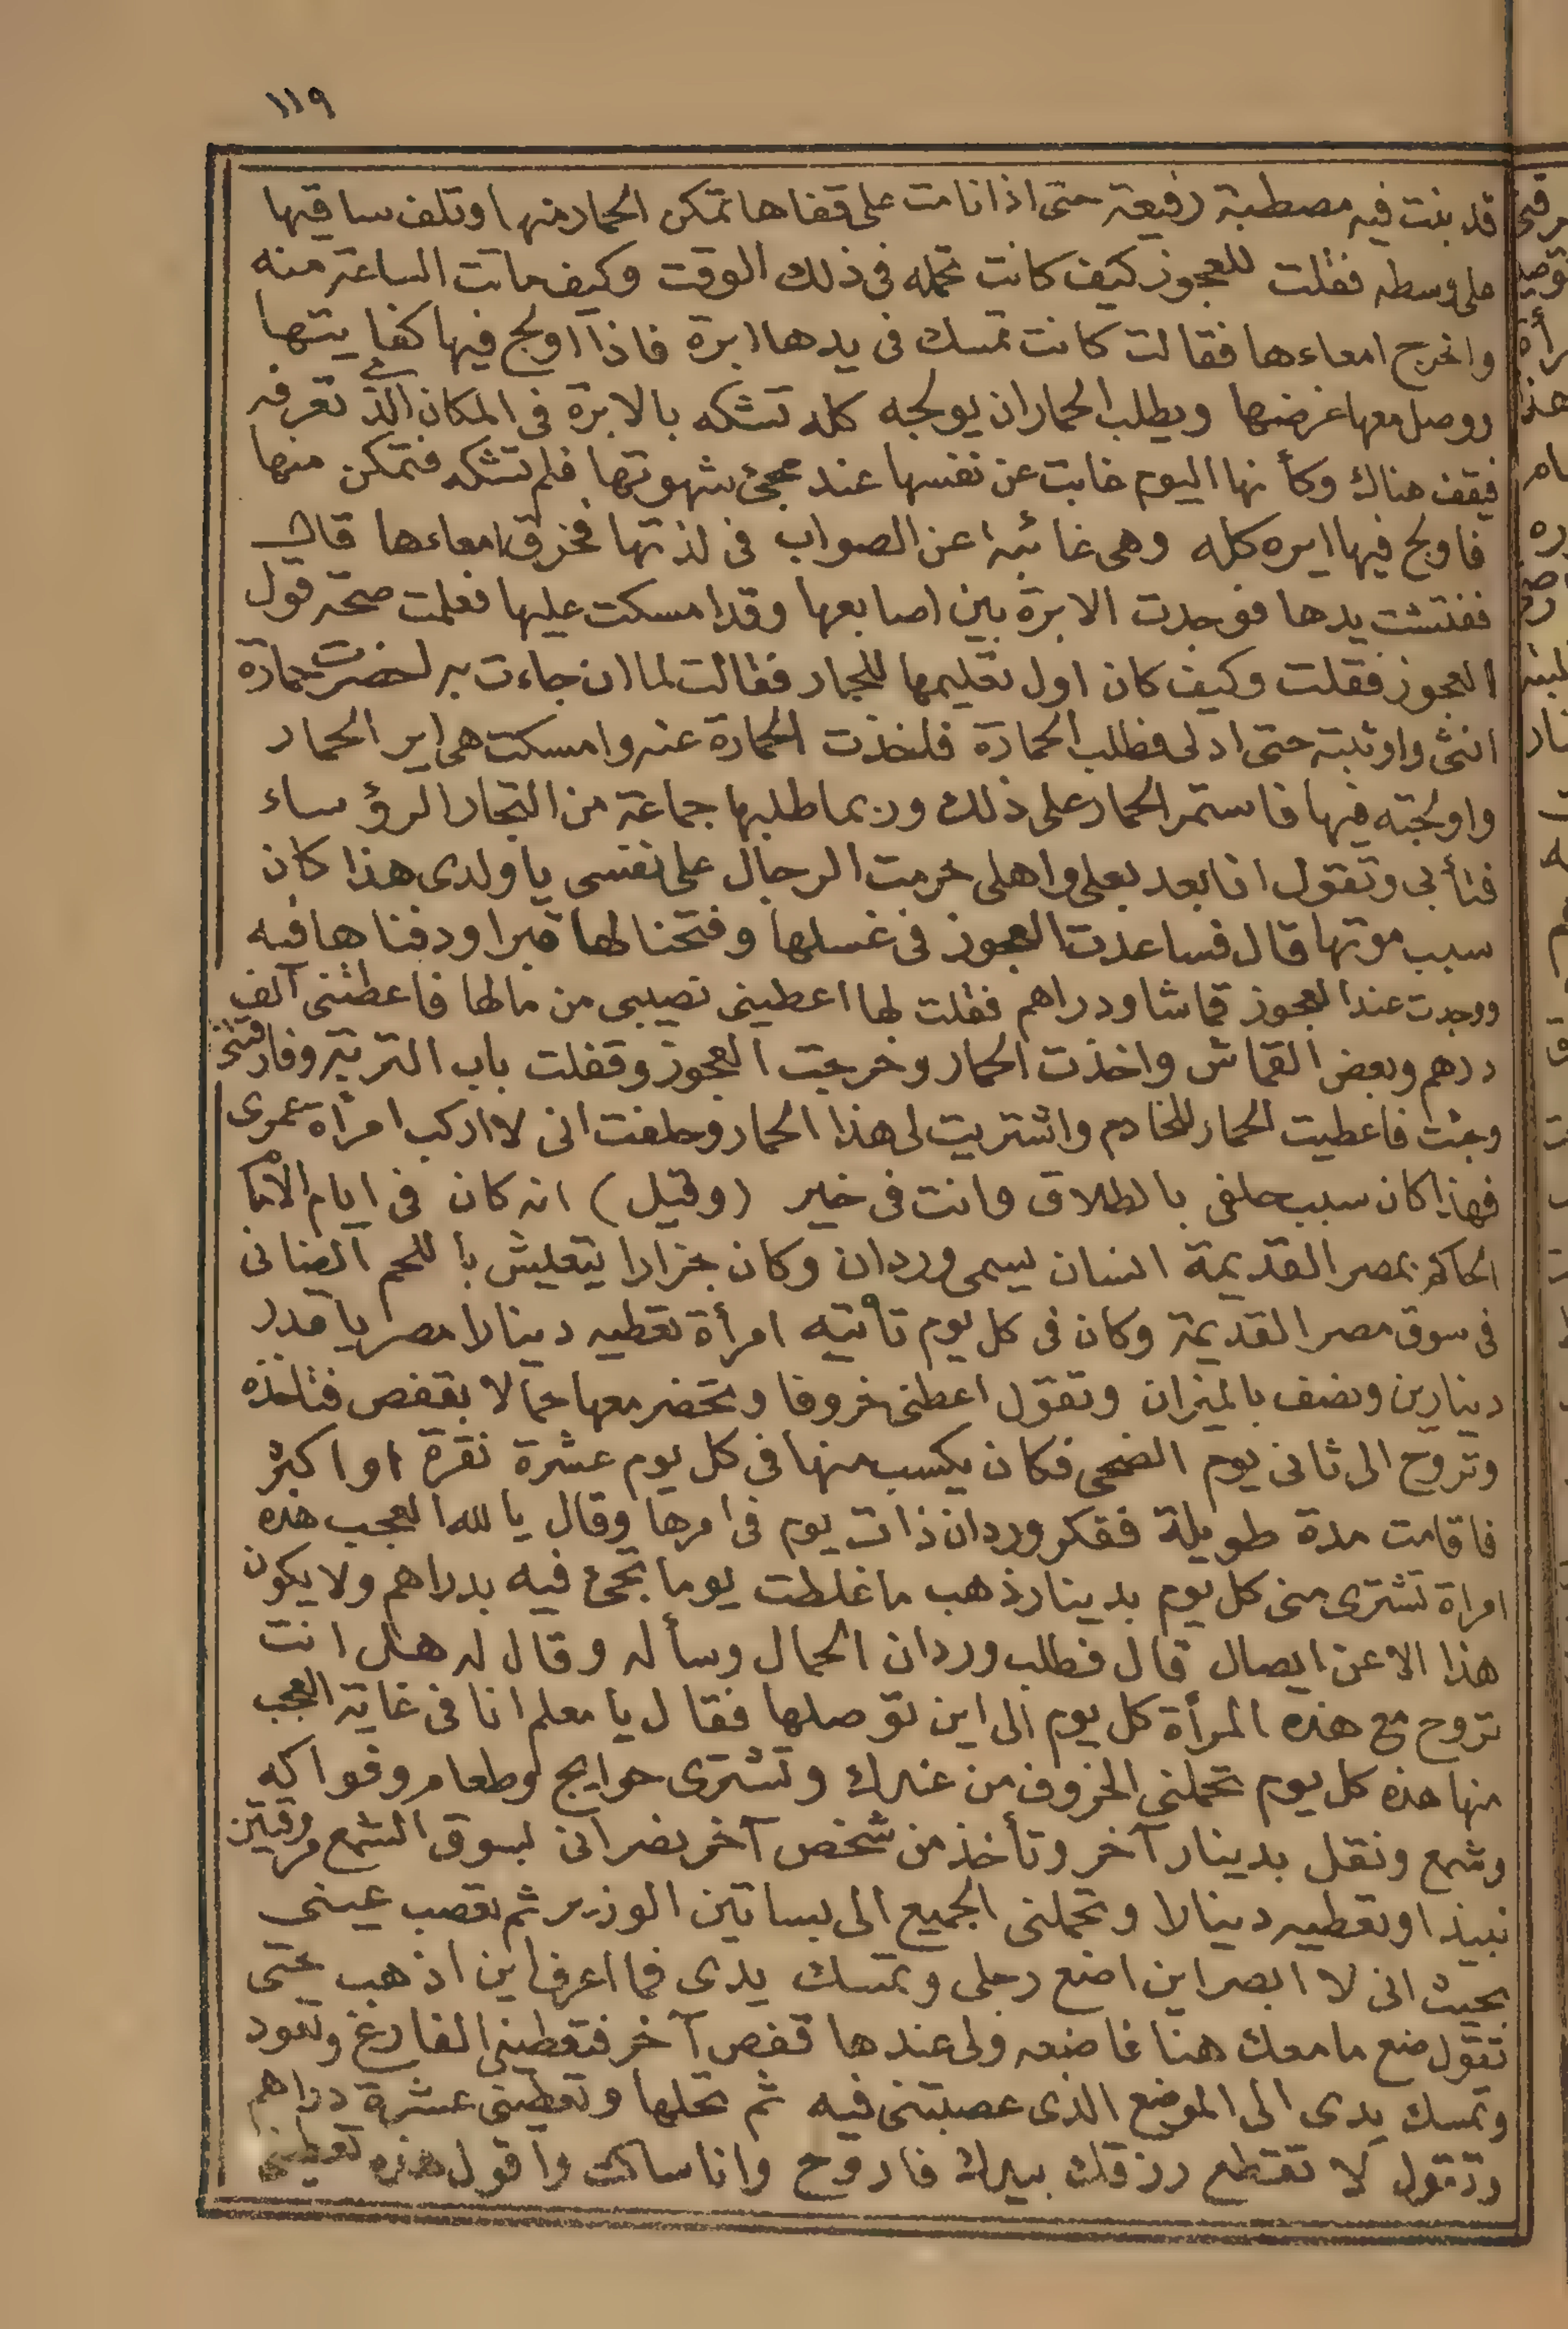 ١١٩
قد بنت فيه مصطبة رفيعة حتى اذا نامت على قفاها تمكن الحمار منها وتلف ساقيها
على وسطه فقلت للعجوز كيف كانت تحمله فى ذلك الوقت وكيف ماتت الساعة منه
واخرج امعاءها فقالت كانت تمسك فى يدها ابرة فاذا اولج فيها كفايتها
ووصل معها غرضها ويطلب الحمار ان يولجه كله تشكه بالابرة فى المكان الذى تعرفه
فيقف هناك وكأنها اليوم غابت عن نفسها عند مجئ شهوتها فلم تشكه فتمكن منها
فاولج فيها ايره كله وهى غائبة عن الصواب فى لذتها فخرق امعاءها قال
ففتشت يدها فوجدت الابرة بين اصابعها وقد امسكت عليها فعلمت صحة قول
العجوز فقلت وكيف كان اول تعليمها للحمار فقالت لما ان جاءت به احضرت حمارة
انثى واوثبته حتى ادلى فطلب الحمارة فاخذت الحمارة عنه وامسكت هى اير الحمار
واولجته فيها فاستمر الحمار على ذلك وربما طلبها جماعة من التجار الرؤساء
فتأبى وتقول انا بعد بعلى واهلى حرمت الرجال على نفسى يا ولدى هذا كان
سبب موتها قال فساعدت العجوز فى غسلها وفتحنا لها قبرا ودفناها فيه
ووجدت عند العجوز قماشا ودراهم فقلت لها اعطينى نصيبى من مالها فاعطتنى الف
درهم وبعض القماش واخذت الحمار وخرجت العجوز وقفلت باب التربة وفارقتنى
وجئت فاعطيت الحمار للخادم واشتريت لى هذا الحمار وحلفت انى لا اركب امرأة عمرى
فهذا كان سبب حلفى بالطلاق وانت فى خير (وقيل) انه كان فى ايام الامام
الحاكم بمصر القديمة انسان يسمى وردان وكان جزارا يتعيش با للحم الضانى
فى سوق مصر القديمة وكان فى كل يوم تأتيه امرأة تعطيه دينارا مصريا قدر
دينارين ونصف بالميزان وتقول اعطنى خروفا وتحضر معها حمالا بقفص فتاخذه
وتروح الى ثانى يوم الضحى فكان يكسب منها فى كل يوم عشرة نقرة او اكثر
فاقامت مدة طويلة ففكر وردان ذات يوم فى امرها وقال يا لله العجب هذه
امراة تشترى منى كل يوم بدينار ذهب ما غلطت يوما تجئ فيه بدراهم ولا يكون
هذا الا عن ايصال قال فطلب وردان الحمال وسأله وقال له هل انت
تروح مع هذه المرأة كل يوم الى اين توصلها فقال يا معلم انا فى غاية العجب
منها هذه كل يوم تحملنى الخروف من عندك وتشترى حوايج وطعام وفواكه
وشمع ونقل بدينار آخر وتأخذ من شخص آخر نصرانى بسوق الشمع مروقتين
نبيذا وتعطيه دينارا وتحملنى الجميع الى بساتين الوزير ثم تعصب عينى
بحيث انى لا ابصر اين اضع رجلى وتمسك يدى فما اعرف اين اذهب حتى
تقول ضع ما معك هنا فاضعه ولى عندها قفص آخر فتعطينى الفارغ وتعود
وتمسك يدى الى الموضع الذى عصبتنى فيه ثم تحلها وتعطينى عشرة دراهم
وتقول لا تقطع رزقك بيدك فاروح وانا ساكت واقول هذه تعطينى